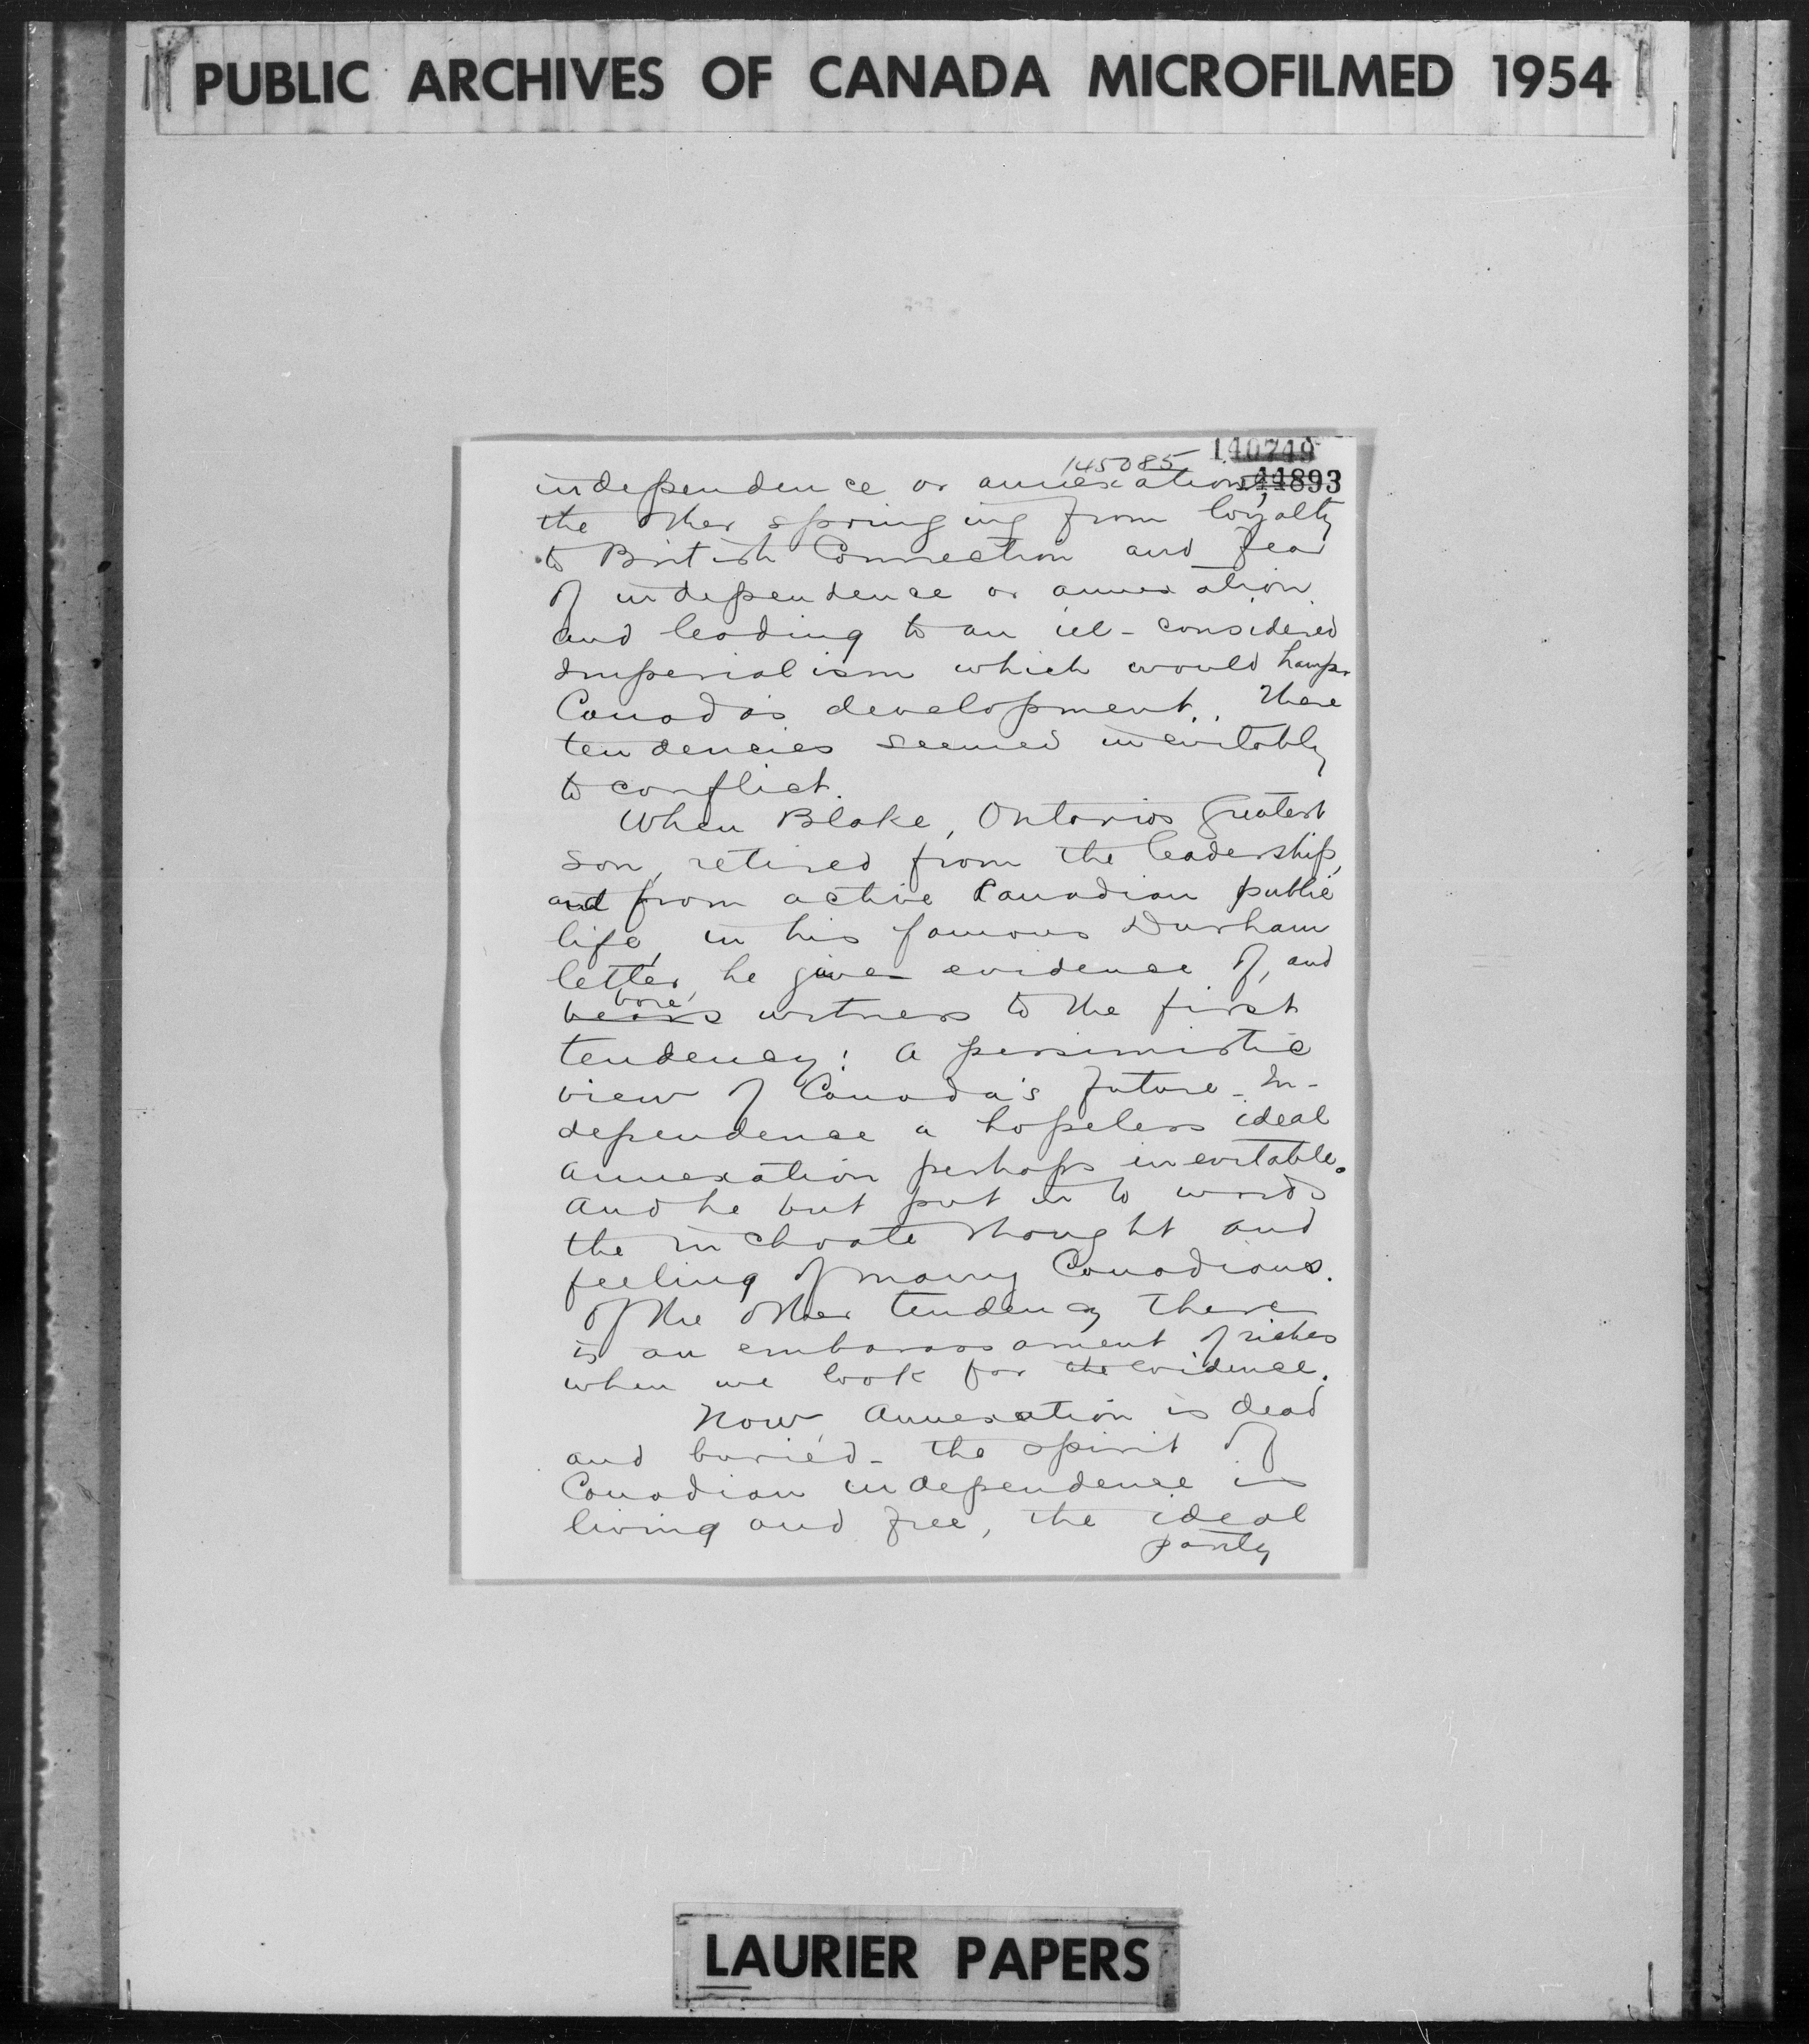 PUBLIC ARCHIVES OF CANADA MICROFILMED 1954
140749
145085
44893
independence or annexation,
the other springing from loyalty
to British Connection and fear
of independence or annexation
and leading to an ill-considered
Imperialism which would hamper
Canada's development. These
tendencies seemed inevitably
to conflict.
When Blake, Ontario's greatest
son, retired from the leadership,
and from active Canadian public
life, in his famous Durham
letter, he gave evidence of, and
bore
bears witness to the first
tendency: a pessimistic
view of Canada's future - In-
dependence a hopeless ideal
annexation perhaps inevitable.
And he but put in to words
the inchoate thought and
feeling of many Canadians.
Of the other tendency there
is an embarassament of riches
when we look for the evidence.
Now, Annexation is dead
and buried - the spirit of
Canadian independence is
living and free, the ideal
party
LAURIER PAPERS